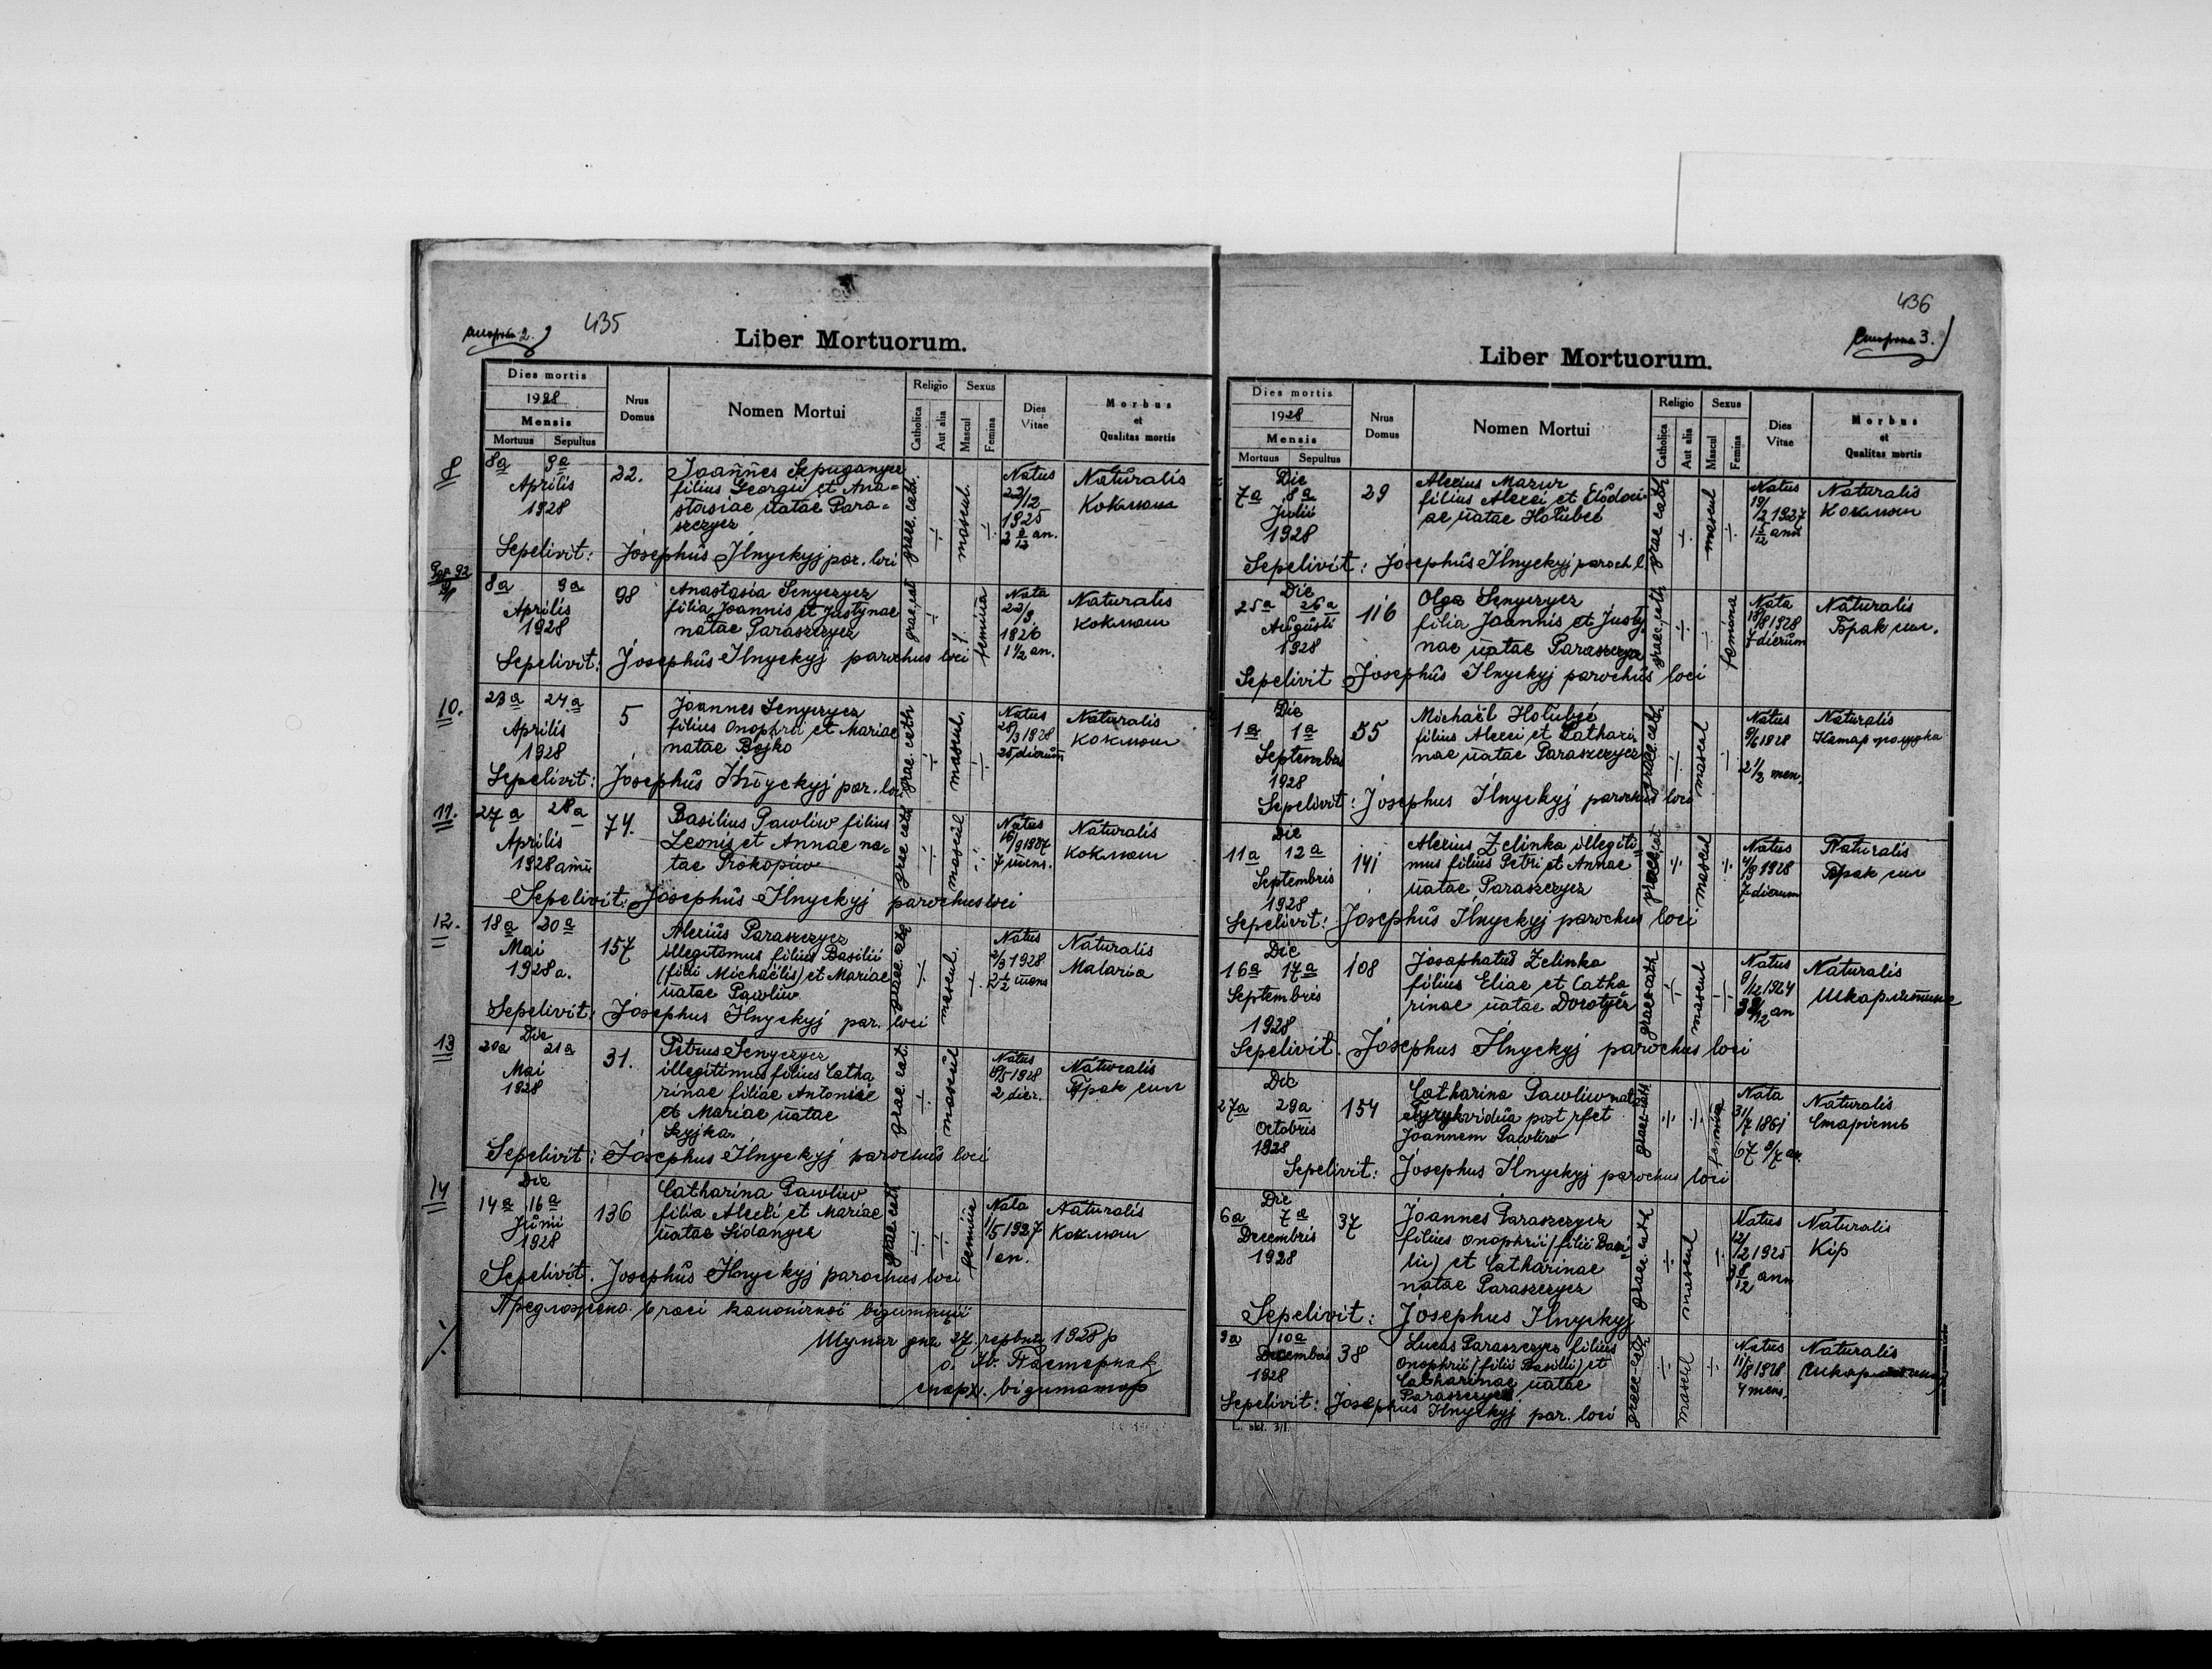 435
Liber Mortuorum.
Dies mortis
1928
Mensis
Mortuus Sepultus
Nrus Domus
Nomen Mortui
Religio
Catholica
Aut alia
Sexus
Mascul
Femina
Dies Vitae
Morbus et Qualitas mortis
8
8a 9a
Aprilis
1928
22.
Joannes
filius Georgii et Ana=
stasiae natae Para=
szczycz
graec. cath.
mascul.
Natus
22/12
1925
Naturalis
Коклюш
Sepelivit: Josephus Ilnyckyj par. loci
8a 9a
Aprilis
1928
98
Anastasia Senyczycz
filia Joannis et Justynae
natae Paraszczycz
femina
Nata
1826
1 1/2 an.
Naturalis
коклюш
Sepelivit: Josephus Ilnyckyj parochus loci
10.
23a 24a
Aprilis
1928
5
Joannes Senyczycz
filius Onophrii et Mariae
natae Bojko
graec. cath
mascul.
Natus
28/3 1928
25 dierum
Naturalis
коклюш
Sepelivit: Josephus Ilnyckyj par. loci
11.
27a 28a
Aprilis
1928 anni
74.
Basilius Pawliw filius
Leonis et Annae na=
tae Prokopiw
graec cath
mascul
Natus
16/9 1927
7 mens.
Naturalis
коклюш
Sepelivit: Josephus Ilnyckyj parochus loci
12.
18a 20a
Mai
1928 a.
157
Alexius Paraszczycz
illegitimus filius Basilii
(filii Michaëlis) et Mariae
natae Pawliw
graec. cath
mascul.
Natus
2/3 1928
2 1/2 mens
Naturalis
Malaria
Sepelivit: Josephus Ilnyckyj par. loci
13
Die
20a 21a
Mai
1928
31.
Petrus Senyczycz
illegitimus filius Catha
rinae filiae Antonii
et Mariae natae
graec. cat.
mascul
Natus
1928
2 dier.
Naturalis
Брак сил
Sepelivit: Josephus Ilnyckyj parochus loci
14
Die
14a 16a
Junii
1928
136
Catharina Pawliw
filia Alexii et Mariae
natae Sidanycz
graec. cath
femina
Nata
1/5 1927
1 an.
Naturalis
Коклюш
Sepelivit. Josephus Ilnyckyj parochus loci
Предложено в часі канонічної візитації
1928 р
о. Ів. Пастернак
єпарх. візитатор
436
Сторона 3.
Liber Mortuorum.
Dies mortis
1928
Mensis
Mortuus Sepultus
Nrus Domus
Nomen Mortui
Religio
Catholica
Aut alia
Sexus
Mascul
Femina
Dies Vitae
Morbus et Qualitas mortis
Die
7a 8a
Julii
1928
29
Alexius Mazur
filius Alexei et Eudoci-
ae natae Holubec
graec cath
mascul
Natus
19/2 1927
1 5/12 anni
Naturalis
Коклюш
Sepelivit: Josephus Ilnyckyj paroch l
Die
25a 26a
Augusti
1928
116
Olga Senyczycz
filia Joannis et Justy
nae natae Paraszczycz
graec. cath
femina
Nata
18/8 1928
7 dierum
Naturalis
Брак сил.
Sepelivit Josephus Ilnyckyj parochus loci
Die
1a 1a
Septembris
1928
55
Michaël Holubec
filius Alexei et Cathari
nae natae Paraszczycz
graec. cath
mascul
Natus
9/6 1928
2 1/3 men.
Naturalis
Катар жолудка
Sepelivit: Josephus Ilnyckyj parochus loci
Die
11a 12a
Septembris
1928
141
Alexius Zelinka illegiti=
mus filius Petri et Annae
natae Paraszczycz
graec. cat
mascul
Natus
4/9 1928
7 dierum
Naturalis
Брак сил
Sepelivit: Josephus Ilnyckyj parochus loci
Die
16a 17a
Septembris
1928
108
Josaphatus Zelinka
filius Eliae et Catha
rinae natae Dorotycz
graec cath
mascul
Natus
9/12 1924
3 9/12 an
Naturalis
Шкарлятина
Sepelivit. Josephus Ilnyckyj parochus loci
Die
27a 29a
Octobris
1928
154
Catharina Pawliw nata
vidua post
Joannem Pawliw
graec-cath.
femina
Nata
31/7 1861
Naturalis
Старість
Sepelivit: Josephus Ilnyckyj parochus loci
Die
6a 7a
Decembris
1928
37
Joannes Paraszczycz
filius Onophrii (filii Basi=
lii) et Catharinae
natae Paraszczycz
graec. cath
mascul
Natus
12/2 1925
3 8/12 ann
Naturalis
Кір
Sepelivit: Josephus Ilnyckyj
9a 10a
Decembris
1928
38
Lucas Paraszczycz filius
Onophrii (filii Basilii) et
Catharinae natae
Paraszczycz
graec-cath
mascul
Natus
11/8 1928
4 mens.
Naturalis
Sepelivit: Josephus Ilnyckyj par. loci